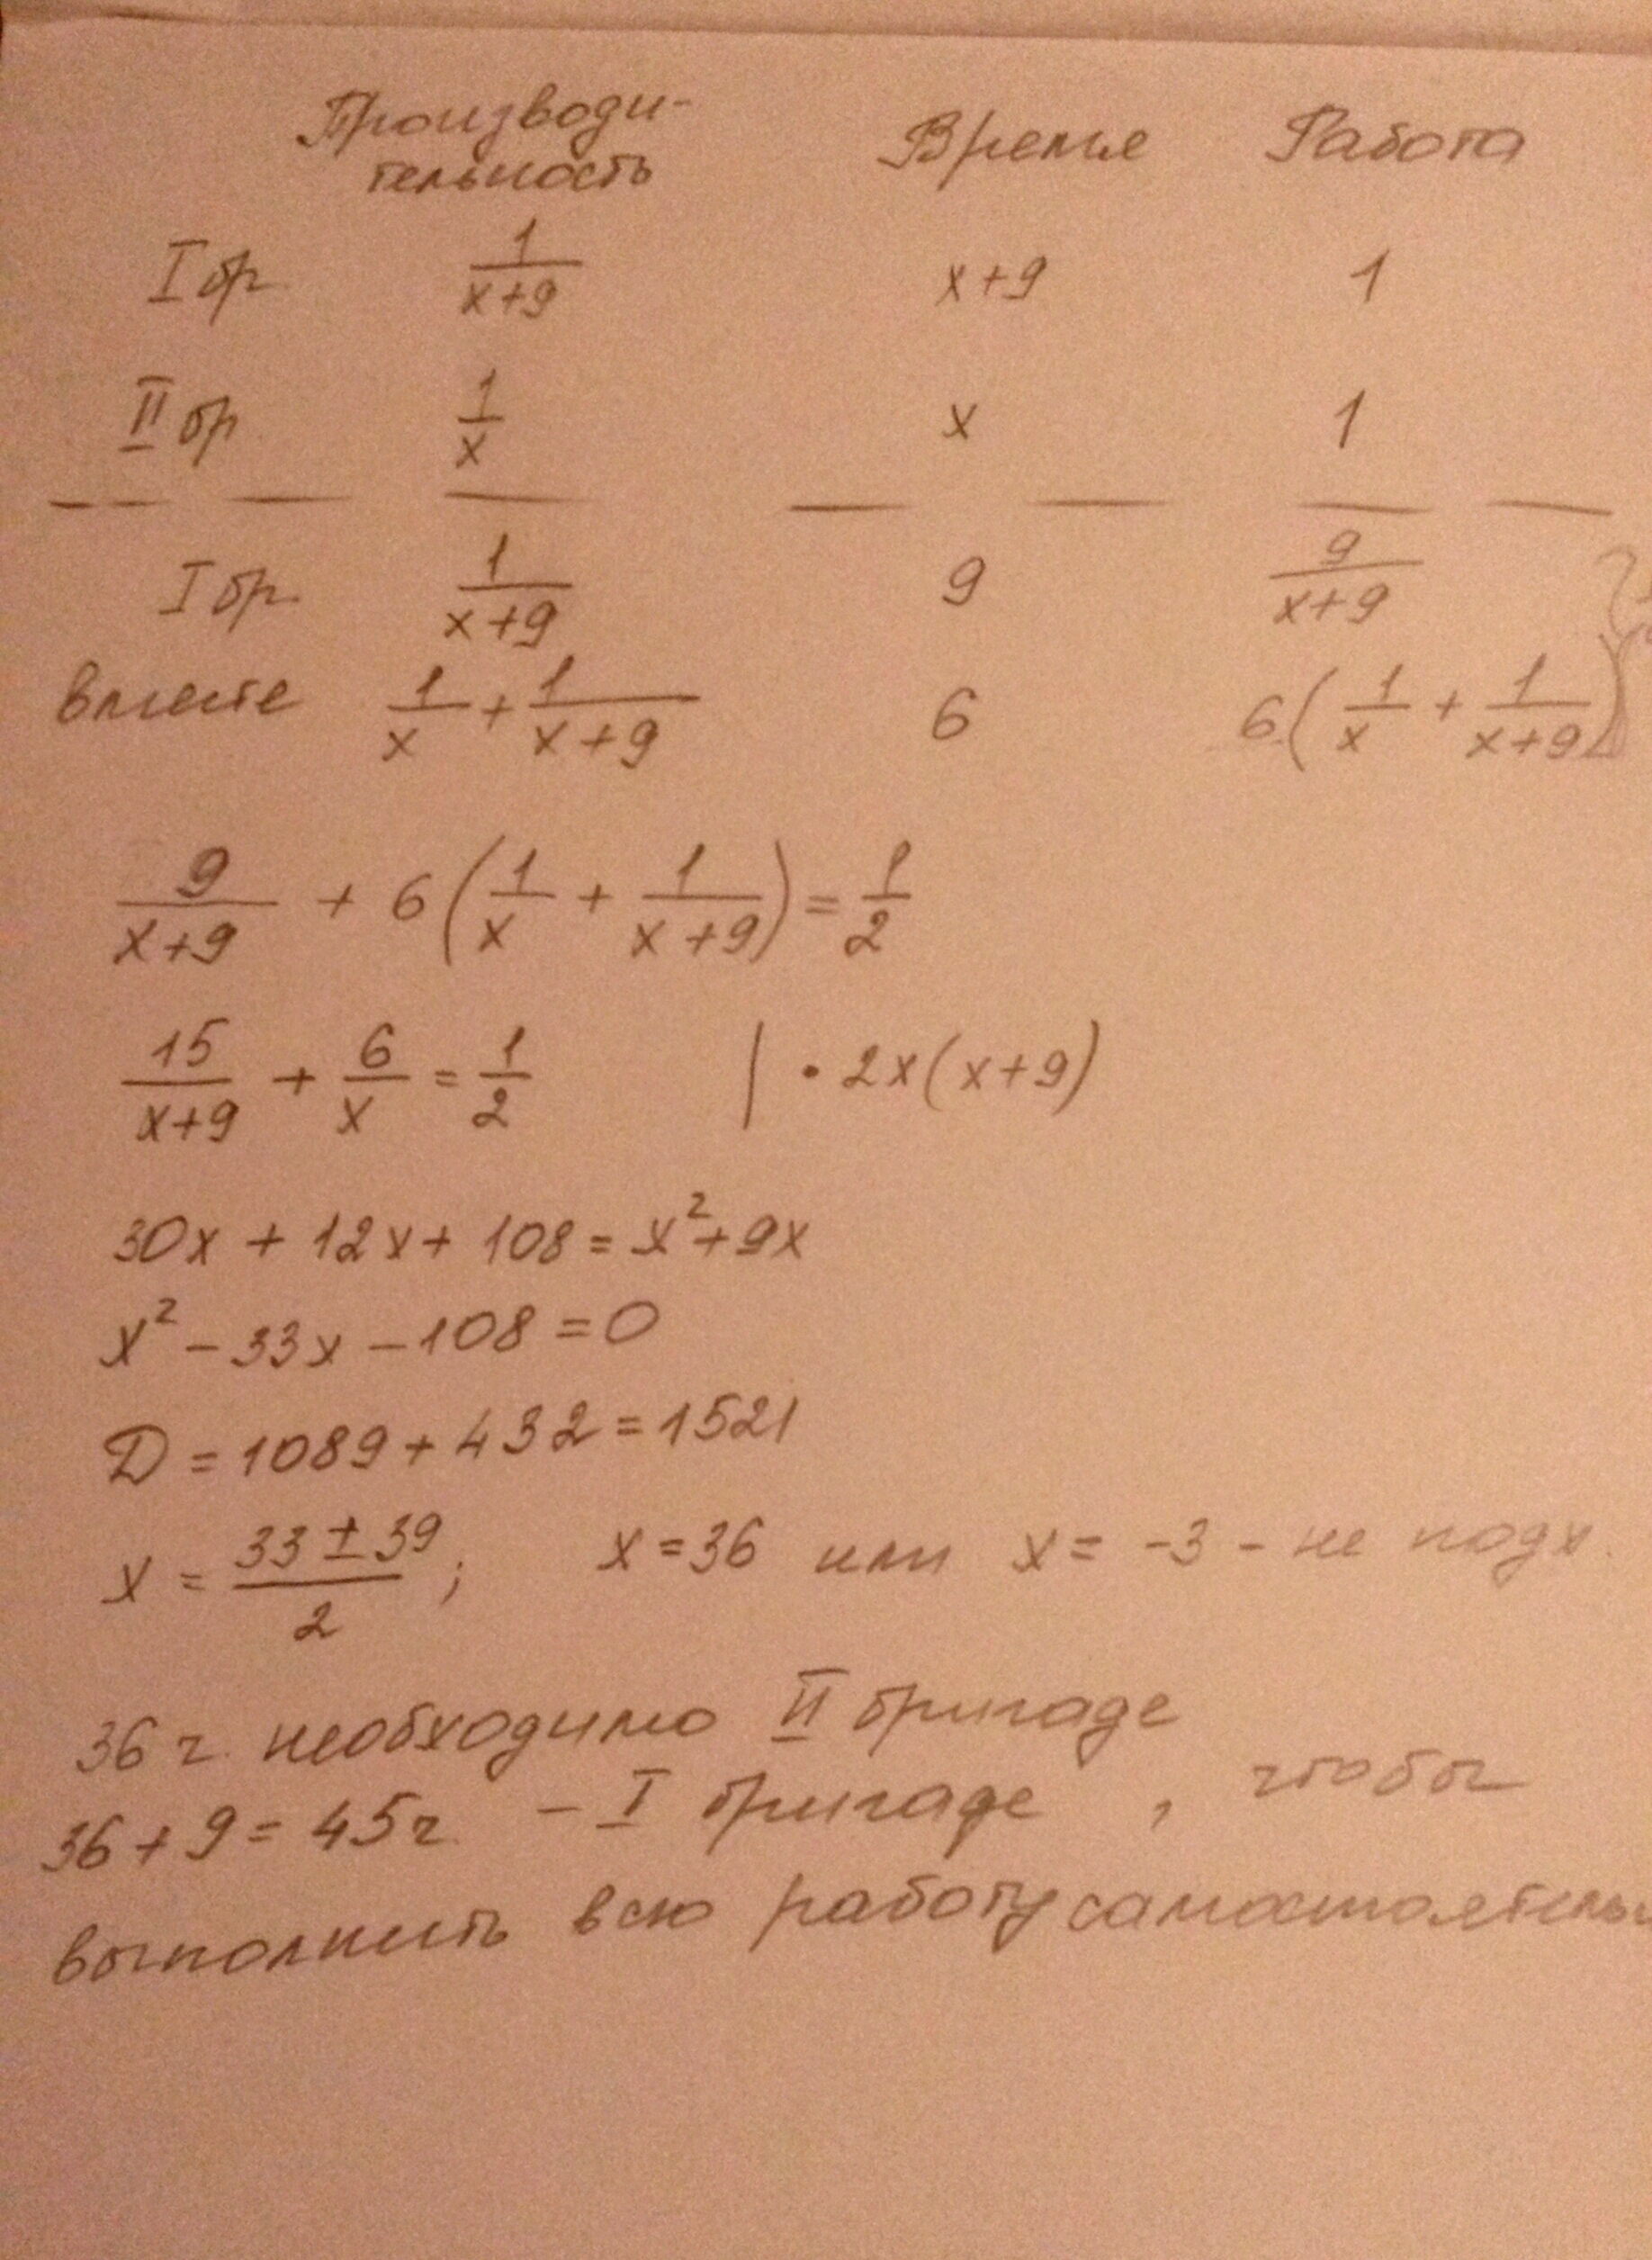 Производи- Время Работа
тельность
I бр. 1/(x+9) x+9 1
II бр 1/x x 1
I бр. 1/(x+9) 9 9/(x+9)
вместе 1/x + 1/(x+9) 6 6(1/x + 1/(x+9))
9/(x+9) + 6(1/x + 1/(x+9)) = 1/2
15/(x+9) + 6/x = 1/2 | · 2x(x+9)
30x + 12x + 108 = x² + 9x
x² - 33x - 108 = 0
D = 1089 + 432 = 1521
x = (33 ± 39)/2 ; x = 36 или x = -3 - не подх.
36 ч. необходимо II бригаде
36 + 9 = 45 ч. - I бригаде , чтобы
выполнить всю работу самостоятельн